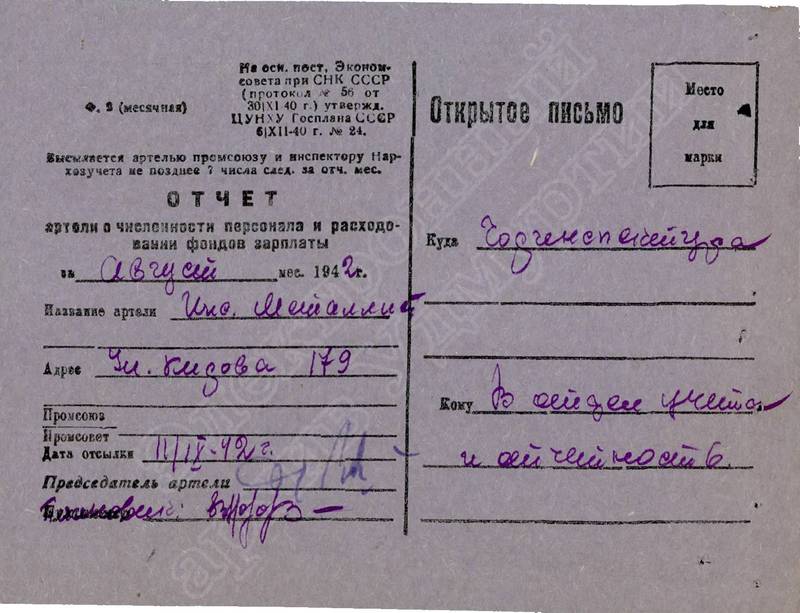 Ф. 2 (месячная)
На осн. пост. Эконом-
совета при СНК СССР
(протокол № 56 от
30|XI 40 г.) утвержд.
ЦУНХУ Госплана СССР
6|XII-40 г. № 24.
Высылается артелью промсоюзу и инспектору Нар-
хозучета не позднее 7 числа след. за отч. мес.
ОТЧЕТ
артели о численности персонала и расходо-
вании фондов зарплаты
за Август мес. 1942г.
Название артели Инс. Металлист
Адрес Ул. 179
Промсоюз
Промсовет
Дата отсылки 11/IX-42г.
Председатель артели
Открытое письмо
Место
для
марки
Куда
Кому В отдел учета
и отчетность.